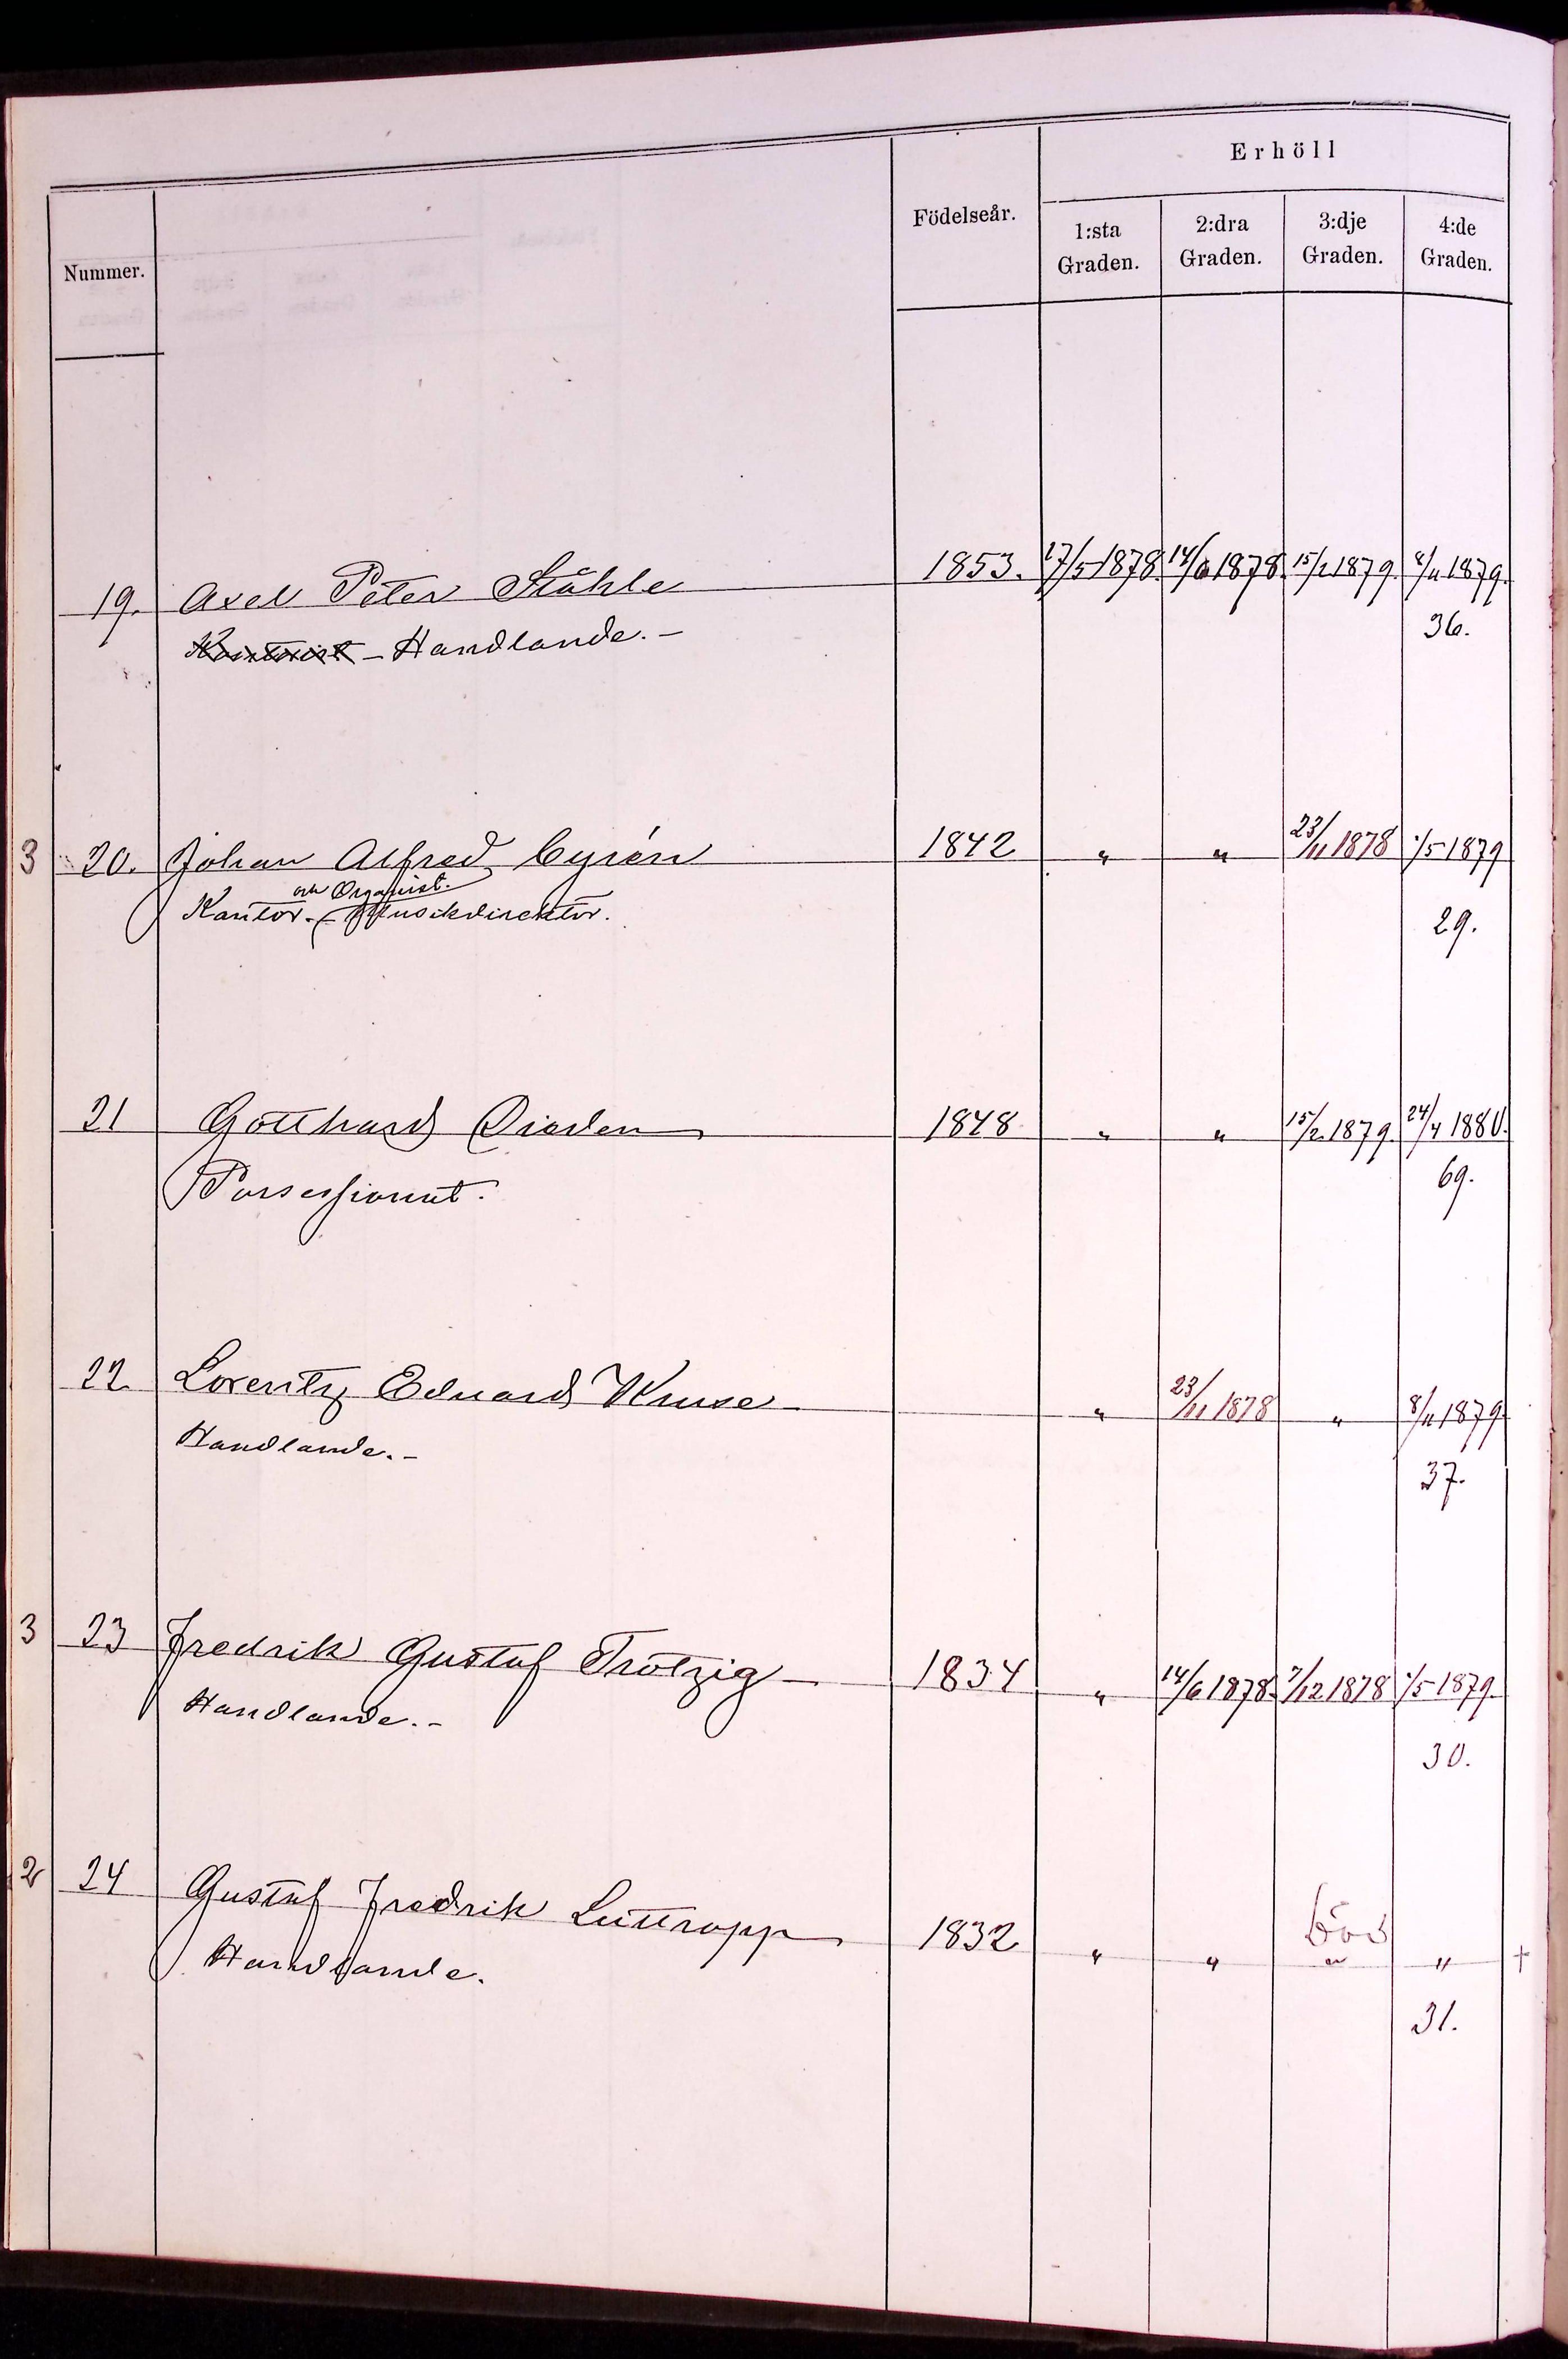 Erhöll
Nummer. Födelseår. 1:sta Graden. 2:dra Graden. 3:dje Graden. 4:de Graden.
19. Axel Peter Ståhle 1853. 17/5 1878. 14/6 1878. 15/2 1879. 8/11 1879.
Kontorist - Handlande. - 36.
3 20. Johan Alfred Cyrén 1842 " " 23/11 1878 1/5 1879
och Organist.
Kantor. - Musikdirektör. 29.
21 Gotthard 1848 " " 15/2 1879. 24/4 1880.
Possessionat. 69.
22. Lorentz Eduard Kruse " 23/11 1878 " 8/11 1879
Handlande. - 37.
3 23 Fredrik Gustaf Trotzig 1834 " 14/6 1878. 7/12 1878 1/5 1879.
Handlande. - 30.
2 24 Gustaf Fredrik Luttropp 1832 " " död " " †
Handlande. 31.